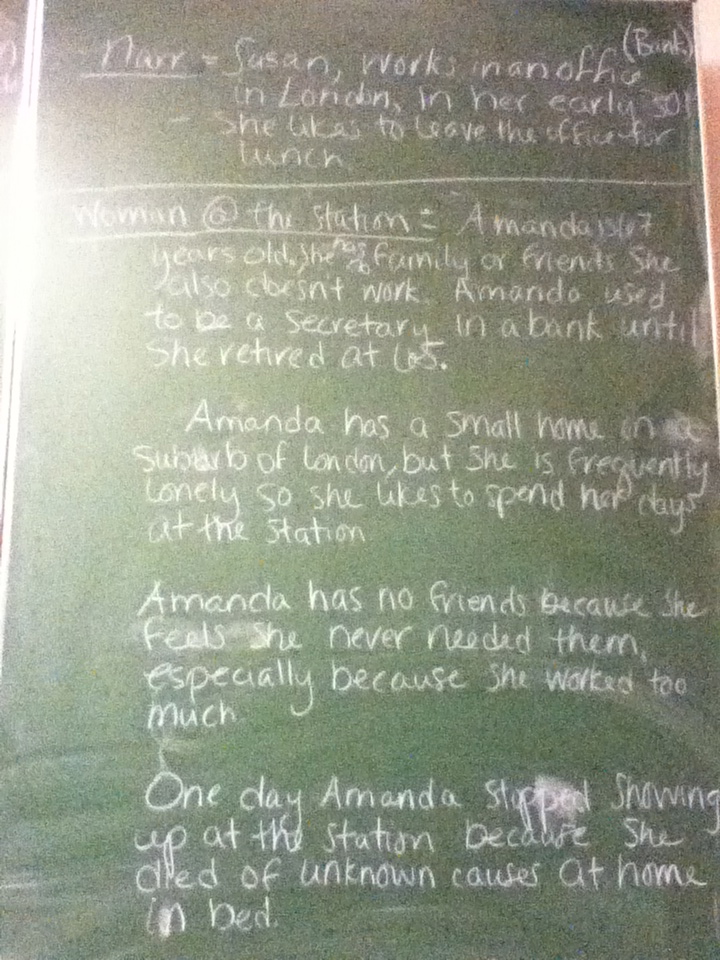 (Bank)
Narr = Susan, works in an office
in London, in her early 30s
- She likes to leave the office for
lunch
Woman @ the station = Amanda is 67
years old. She has no family or friends She
also doesn't work. Amanda used
to be a secretary in a bank until
she retired at 65.
Amanda has a small home in a
suburb of London, but she is frequently
lonely so she likes to spend her days
at the station
Amanda has no friends because she
feels she never needed them,
especially because she worked too
much
One day Amanda stopped showing
up at the station because she
died of unknown causes at home
in bed.